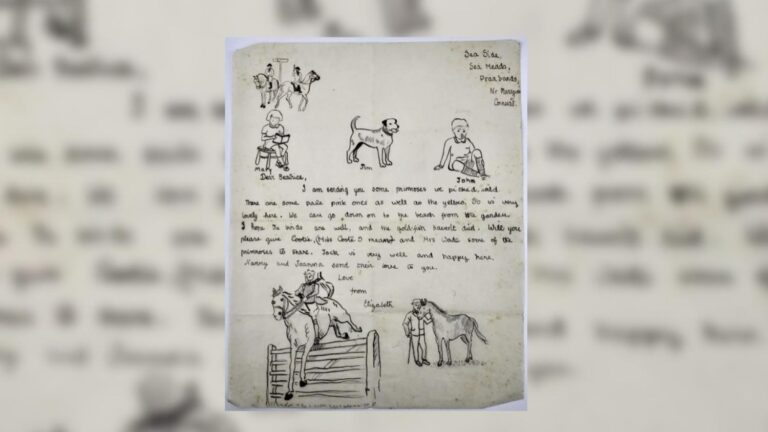 Sea Side,
Sea Meads,
Praa Sands,
Nr Marazion
Cornwall.
Mary
Jim
John
Dear Beatrice,
I am sending you some primroses we picked, wild
There are some pale pink ones as well as the yellow, It is very
lovely here. We can go down on to the beach from the garden.
I hope the birds are well, and the goldfish haven't died. Will you
please give Cootie, (Miss Coote I meant) and Mrs Wade some of the
primroses to share. Jock is very well and happy here,
Nanny and Joanna send their love to you.
Love
from
Elizabeth